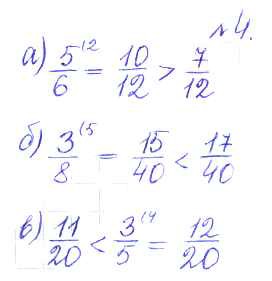 №4.
а) 5/6 ⁽² = 10/12 > 7/12
б) 3/8 ⁽⁵ = 15/40 < 17/40
в) 11/20 < 3/5 ⁽⁴ = 12/20